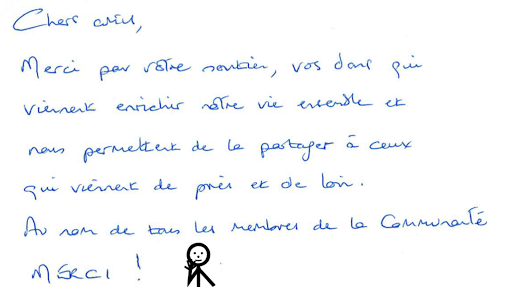 Chers amis,
Merci par votre soutien, vos dons qui
viennent enrichir notre vie ensemble et
nous permettent de la partager à ceux
qui viennent de près et de loin.
Au nom de tous les membres de la Communauté
MERCI !